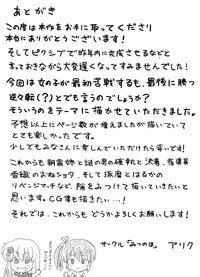 あとがき
この度は本作をお手に取ってくださり
本当にありがとうございます！
そしてピクシブで昨年内に完成させるなどと
言っておきながら大変遅くなってすみませんでした！
今回は女の子が最初苦戦するも、最後に勝つ
逆々転(？)とでも言うのでしょうか？
そういうのをテーマに描かせていただきました。
予想以上にページ数が増えましたが描いていて
とても楽しかったです。
少しでもみなさんに楽しんでいただけたら幸いです！
これからも朝霧姉と謎の男の確執と決着、指導員
香織のまねショタ、そして琢磨とはるかの
リベンジマッチなど、隙をみつけて描いていきたいと
思います。CG集も描きたい・・・！
それでは、これからもどうかよろしくお願いします！
サークル「みつのは」 アリク